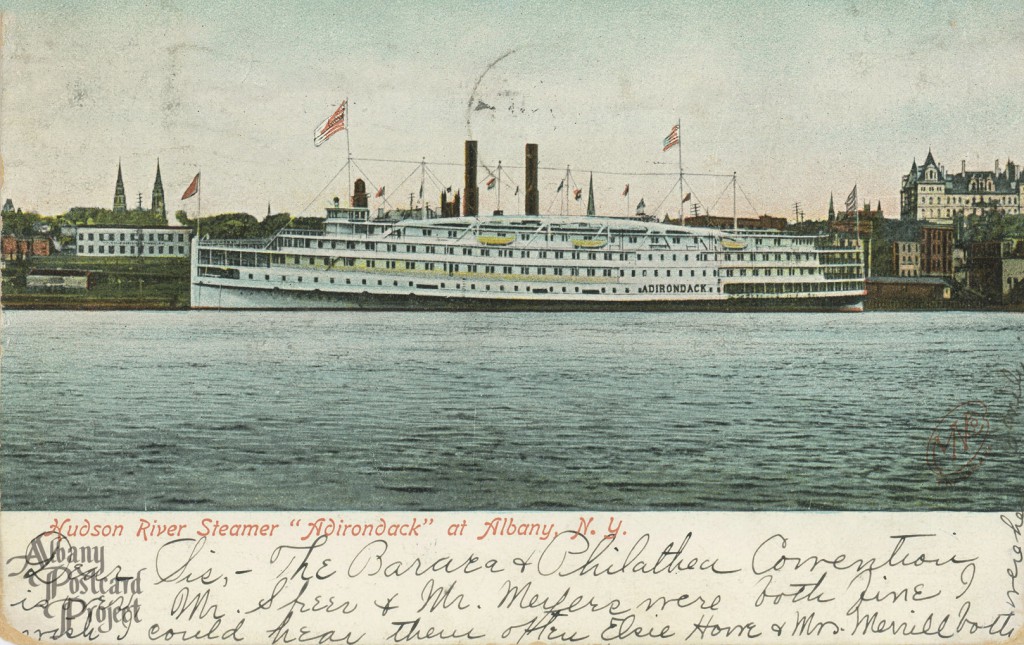 ADIRONDACK
Hudson River Steamer "Adirondack" at Albany, N. Y.
Albany
Postcard
Project
Dear Sis,- The Baraca & Philathea Convention
is over Mr. Speer & Mr. Meyers were both fine I
wish I could hear them often Elsie Howe & Mrs. Merrill both
were he